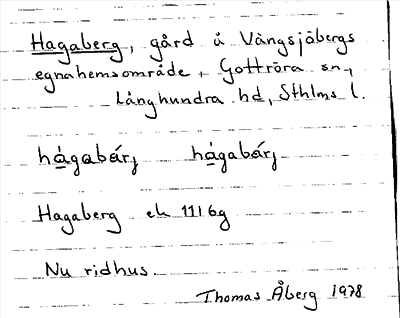 Hagaberg, gård å Vängsjöbergs
egnahemsområde, Gottröra sn.,
Långhundra hd, Sthlms l.
hágabárj hágabárj
Hagaberg ek 11I6g
Nu ridhus.
Thomas Åberg 1978